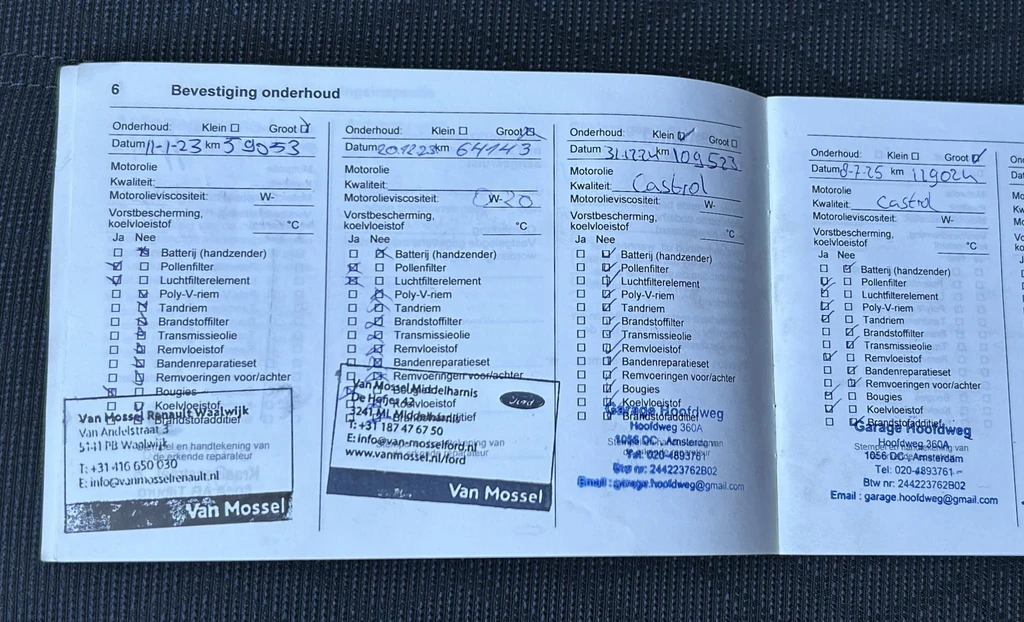 6 Bevestiging onderhoud
Onderhoud: Klein Groot
Datum 11-1-23 km 59053
Motorolie
Kwaliteit:
Motorolieviscositeit: W-
Vorstbescherming,
koelvloeistof °C
Ja Nee
Batterij (handzender)
Pollenfilter
Luchtfilterelement
Poly-V-riem
Tandriem
Brandstoffilter
Transmissieolie
Remvloeistof
Bandenreparatieset
Remvoeringen voor/achter
Bougies
Koelvloeistof
Brandstofadditief
Stempel en handtekening van
de erkende reparateur
Van Mossel Renault Waalwijk
Van Andelstraat 3
5141 PB Waalwijk
T: +31 416 650 030
E: info@vanmosselrenault.nl
Van Mossel
Onderhoud: Klein Groot
Datum 20.12.23 km 64143
Motorolie
Kwaliteit:
Motorolieviscositeit: 0W-20
Vorstbescherming,
koelvloeistof °C
Ja Nee
Batterij (handzender)
Pollenfilter
Luchtfilterelement
Poly-V-riem
Tandriem
Brandstoffilter
Transmissieolie
Remvloeistof
Bandenreparatieset
Remvoeringen voor/achter
Bougies
Koelvloeistof
Brandstofadditief
Van Mossel Middelharnis
De Hofjes 42
3241 ML Middelharnis
T: +31 187 47 67 50
E: info@van-mosselford.nl
www.vanmossel.nl/ford
Ford
Van Mossel
Onderhoud: Klein Groot
Datum 31.12.24 km 109523
Motorolie
Kwaliteit: Castrol
Motorolieviscositeit: W-
Vorstbescherming,
koelvloeistof °C
Ja Nee
Batterij (handzender)
Pollenfilter
Luchtfilterelement
Poly-V-riem
Tandriem
Brandstoffilter
Transmissieolie
Remvloeistof
Bandenreparatieset
Remvoeringen voor/achter
Bougies
Koelvloeistof
Brandstofadditief
Garage Hoofdweg
Hoofdweg 360A
1056 DC, Amsterdam
Tel: 020-4893761
Btw nr: 244223762B02
Email: garage.hoofdweg@gmail.com
Onderhoud: Klein Groot
Datum 8-7-25 km 119024
Motorolie
Kwaliteit: Castrol
Motorolieviscositeit: W-
Vorstbescherming,
koelvloeistof °C
Ja Nee
Batterij (handzender)
Pollenfilter
Luchtfilterelement
Poly-V-riem
Tandriem
Brandstoffilter
Transmissieolie
Remvloeistof
Bandenreparatieset
Remvoeringen voor/achter
Bougies
Koelvloeistof
Brandstofadditief
Garage Hoofdweg
Hoofdweg 360A
1056 DC, Amsterdam
Tel: 020-4893761
Btw nr: 244223762B02
Email : garage.hoofdweg@gmail.com